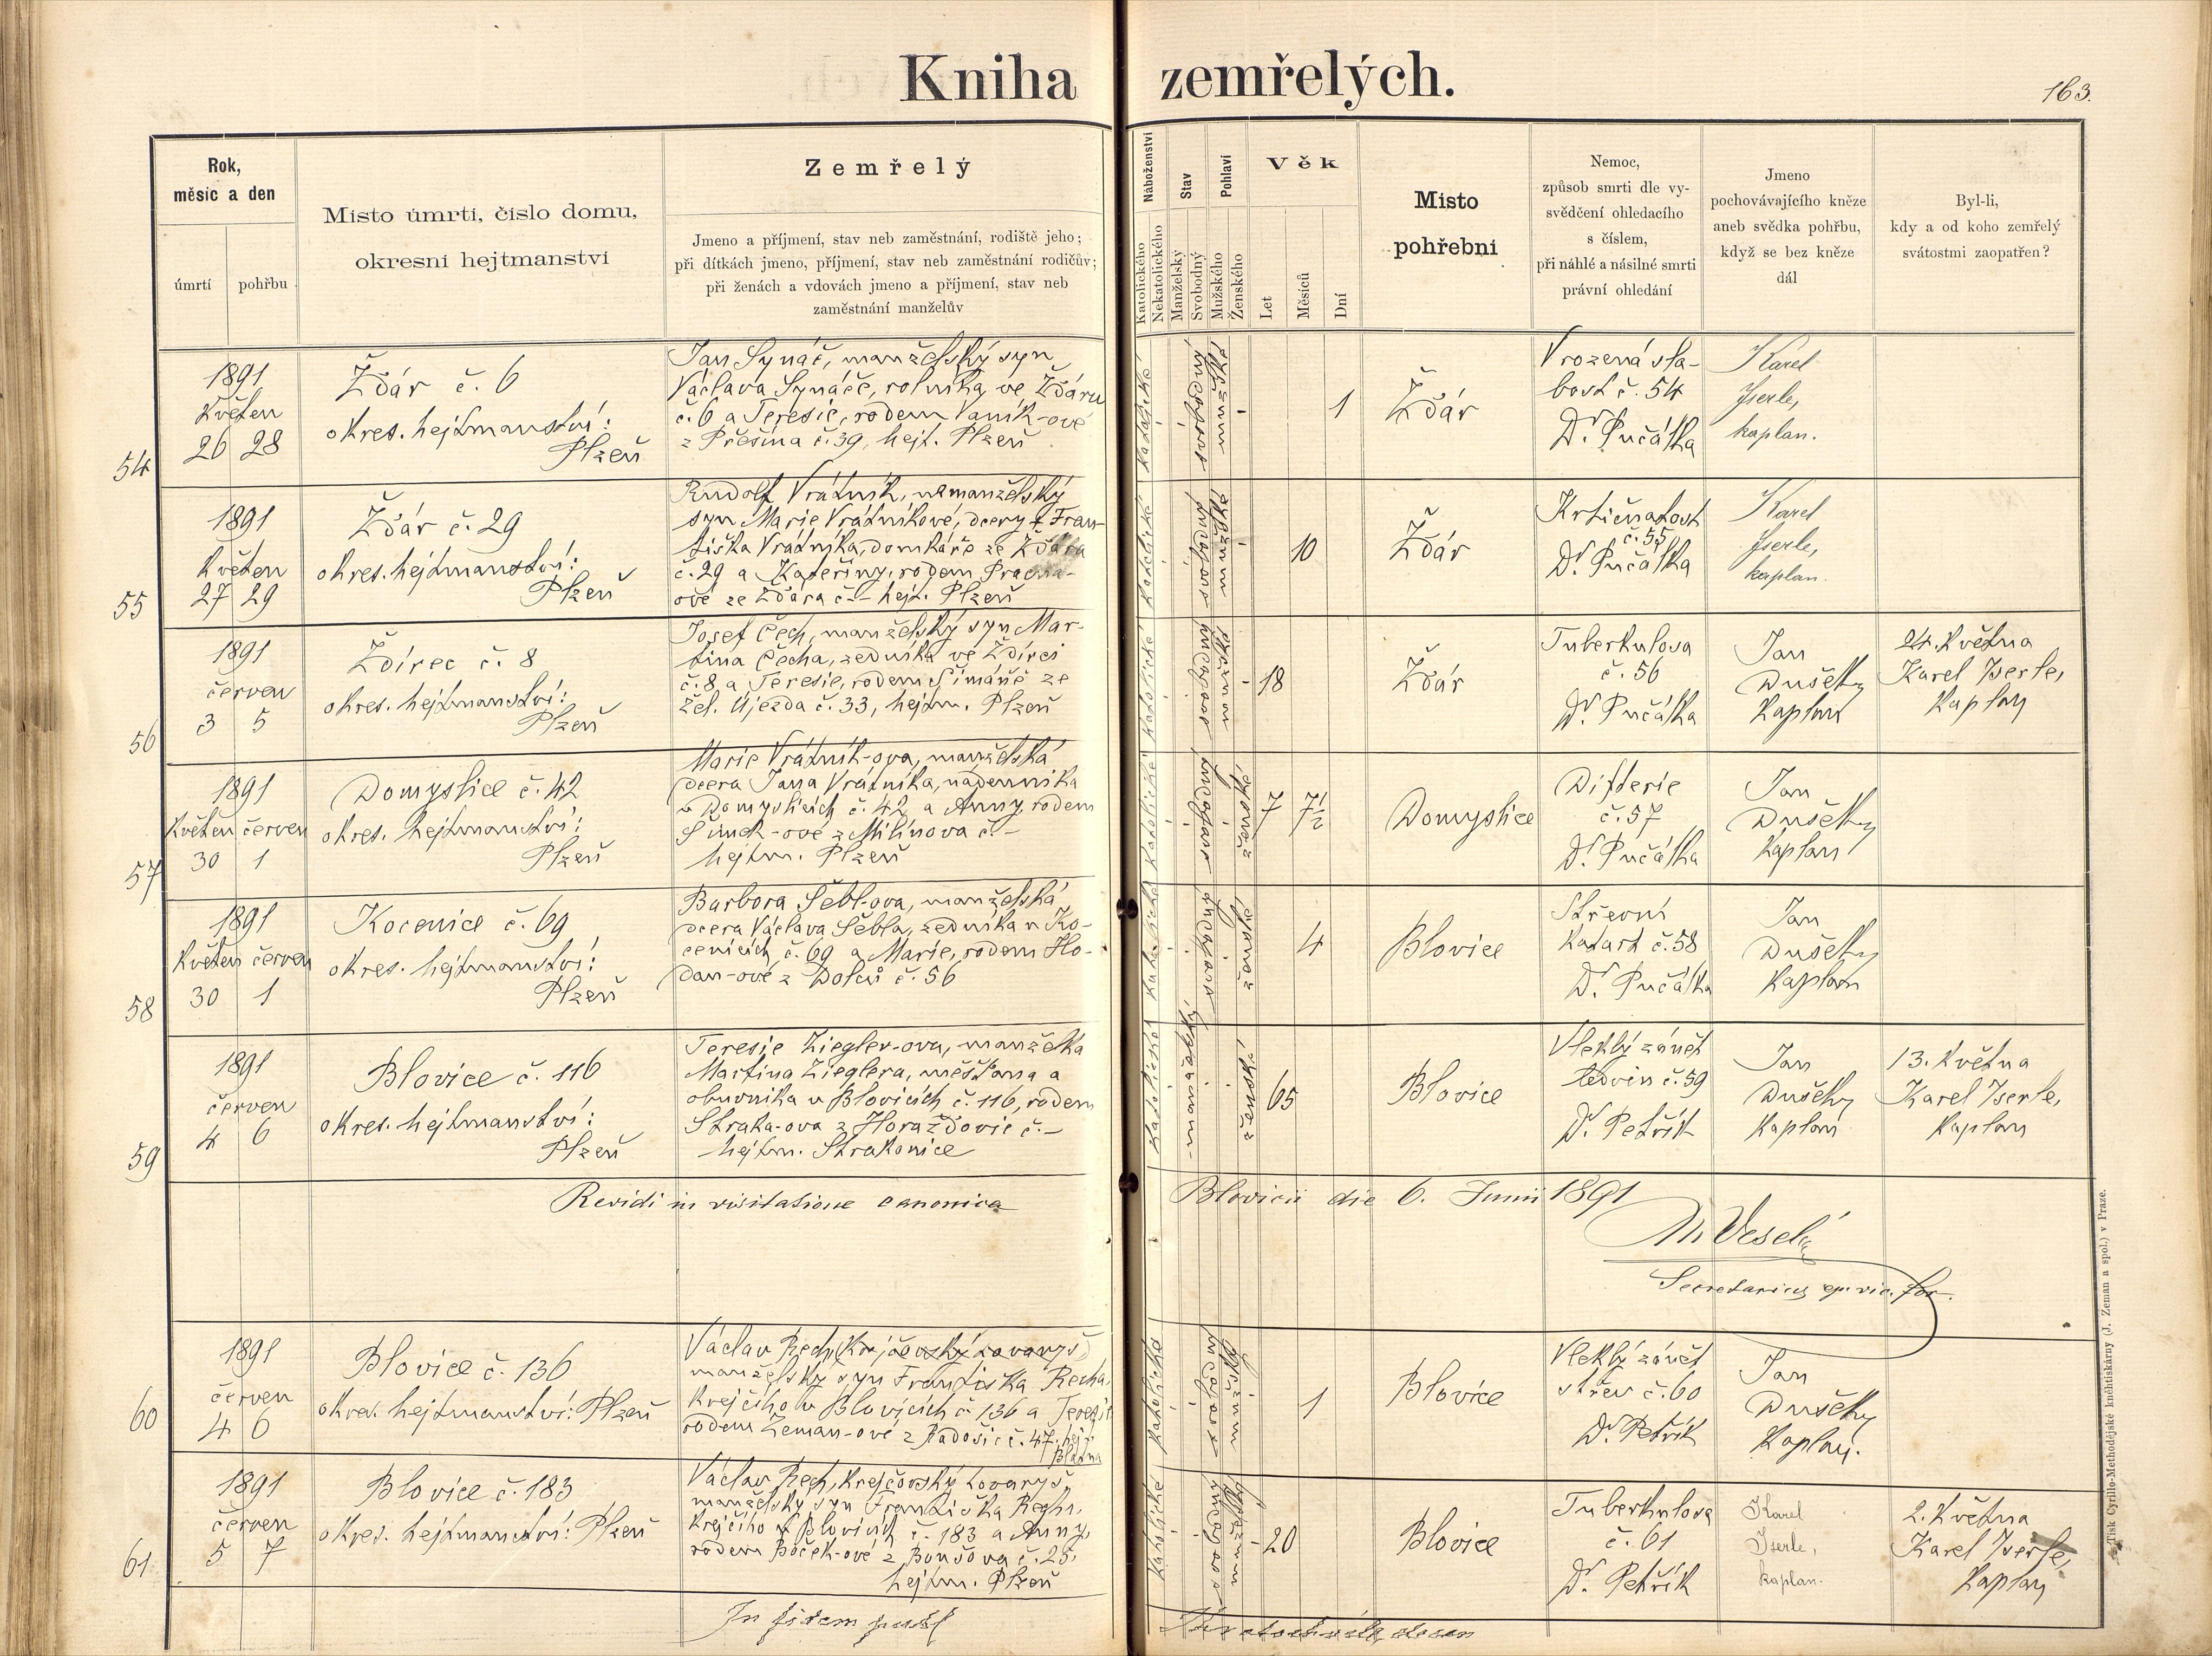 Kniha zemřelých.
163.
Rok,
měsíc a den
úmrtí
pohřbu
Místo úmrtí, číslo domu,
okresní hejtmanství
Zemřelý
Jmeno a příjmení, stav neb zaměstnání, rodiště jeho;
při dítkách jmeno, příjmení, stav neb zaměstnání rodičův;
při ženách a vdovách jmeno a příjmení, stav neb
zaměstnání manželův
Náboženství
Katolického
Nekatolického
Stav
Manželský
Svobodný
Pohlaví
Mužského
Ženského
Věk
Let
Měsíců
Dní
Místo
pohřební
Nemoc,
způsob smrti dle vy-
svědčení ohledacího
s číslem,
při náhlé a násilné smrti
právní ohledání
Jmeno
pochovávajícího kněze
aneb svědka pohřbu,
když se bez kněze
dál
Byl-li,
kdy a od koho zemřelý
svátostmi zaopatřen?
54
1891
Květen
26 28
Ždár č. 6
okres. hejtmanství:
Plzeň
Jan Synáč, manželský syn
Václava Synáče, rolníka ve Ždáru
č. 6 a Teresie, rodem Vaník-ové
z Přešína č. 39, hejt. Plzeň
katolické
svobodný
mužské
1
Ždár
Vrozená sla-
bost č. 54
Dr. Pučálka
Karel
Iserle,
kaplan.
55
1891
Květen
27 29
Ždár č. 29
okres. hejtmanství:
Plzeň
Rudolf Vrátník, nemanželský
syn Marie Vrátníkové, dcery † Fran-
tiška Vrátníka, domkáře ze Ždára
č. 29 a Kateřiny, rodem
ové ze Ždára č - hejt. Plzeň
katolické
svobodný
mužské
10
Ždár
Krtičnatost
č. 55
Dr. Pučálka
Karel
Iserle,
kaplan.
56
1891
červen
3 5
Ždírec č. 8
okres. hejtmanství:
Plzeň
Josef Čech, manželský syn Mar-
tina Čecha, zedníka ve Ždírci
č. 8 a Teresie, rodem Šimáně ze
Žel. Újezda č. 33, hejtm. Plzeň
katolické
svobodný
mužské
18
Ždár
Tuberkulosa
č. 56
Dr. Pučálka
Jan
Dušek,
Kaplan
24. Května
Karel Iserle,
Kaplan
57
1891
Květen červen
30 1
Domyslice č. 42
okres. hejtmanství:
Plzeň
Marie Vrátník-ova, manželská
dcera Jana Vrátníka, nádenníka
v Domyslicích č. 42 a Anny, rodem
Šimek-ové z Milínova č -
hejtm. Plzeň
katolické
svobodný
ženské
7 7½
Domyslice
Difterie
č. 57
Dr. Pučálka
Jan
Dušek,
Kaplan
58
1891
Květen červen
30 1
Kocenice č. 69
okres. hejtmanství:
Plzeň
Barbora Šebl-ova, manželská
dcera Václava Šebla, zedníka v Ko-
cenicích, č. 69 a Marie, rodem Ho-
dan-ové z Dolců č. 56
katolické
svobodný
ženské
4
Blovice
Střevní
Katarh č. 58
Dr. Pučálka
Jan
Dušek,
Kaplan
59
1891
červen
4 6
Blovice č. 116
okres. hejtmanství:
Plzeň
Teresie Ziegler-ova, manželka
Martina Zieglera, měšťana a
obuvníka v Blovicích č. 116, rodem
Straka-ova z Horažďovic č. -
hejtm. Strakonice
katolické
manželský
ženské
65
Blovice
Vleklý zánět
ledvin č. 59
Dr. Petřík
Jan
Dušek,
Kaplan
13. Května
Karel Iserle,
Kaplan
Revidi in visitatione canonica Blovicii die 6. Junii 1891
M. Veselý
Secretarius ep. vic. for.
60
1891
červen
4 6
Blovice č. 136
okres. hejtmanství: Plzeň
Václav Rech, (Krejčovský tovaryš)
manželský syn Františka Recha,
Krejčího v Blovicích č. 136 a Teresie
rodem Zeman-ové z Radošic č. 47. hejt.
Blatna
katolické
svobodný
mužské
1
Blovice
Vleklý zánět
střev č. 60
Dr. Petřík
Jan
Dušek,
Kaplan.
61
1891
červen
5 7
Blovice č. 183
okres. hejtmanství: Plzeň
Václav Rech, Krejčovský tovaryš
manželský syn Františka Recha,
Krejčího v Blovicích č. 183 a Anny,
rodem Boček-ové z Boršova č. 25,
hejtm. Plzeň
katolické
svobodný
mužské
20
Blovice
Tuberkulosa
č. 61
Dr. Petřík
Karel
Iserle,
kaplan.
2. Května
Karel Iserle,
Kaplan
In fidem
Tisk Cyrillo-Methodějské kněhtiskárny (J. Zeman a spol.) v Praze.